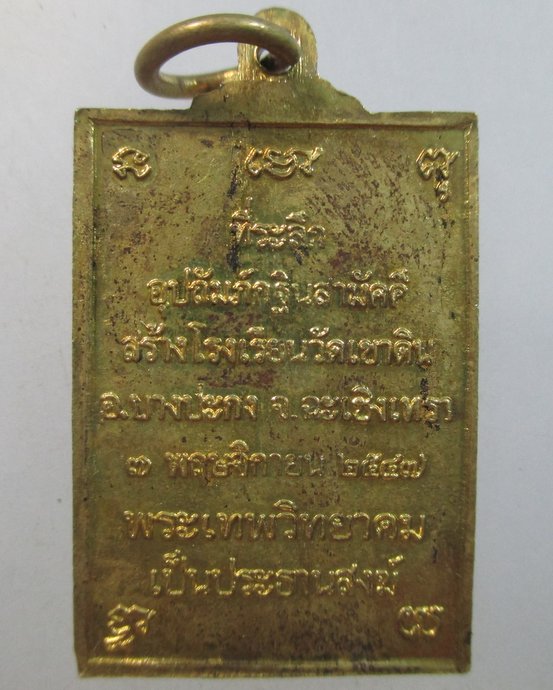 ที่ระลึก
อุปถัมภ์กฐินสามัคคี
สร้างโรงเรียนวัดเขาดิน
อ.บางปะกง จ.ฉะเชิงเทรา
๗ พฤษจิกายน ๒๕๔๗
พระเทพวิทยาคม
เป็นประธานสงฆ์